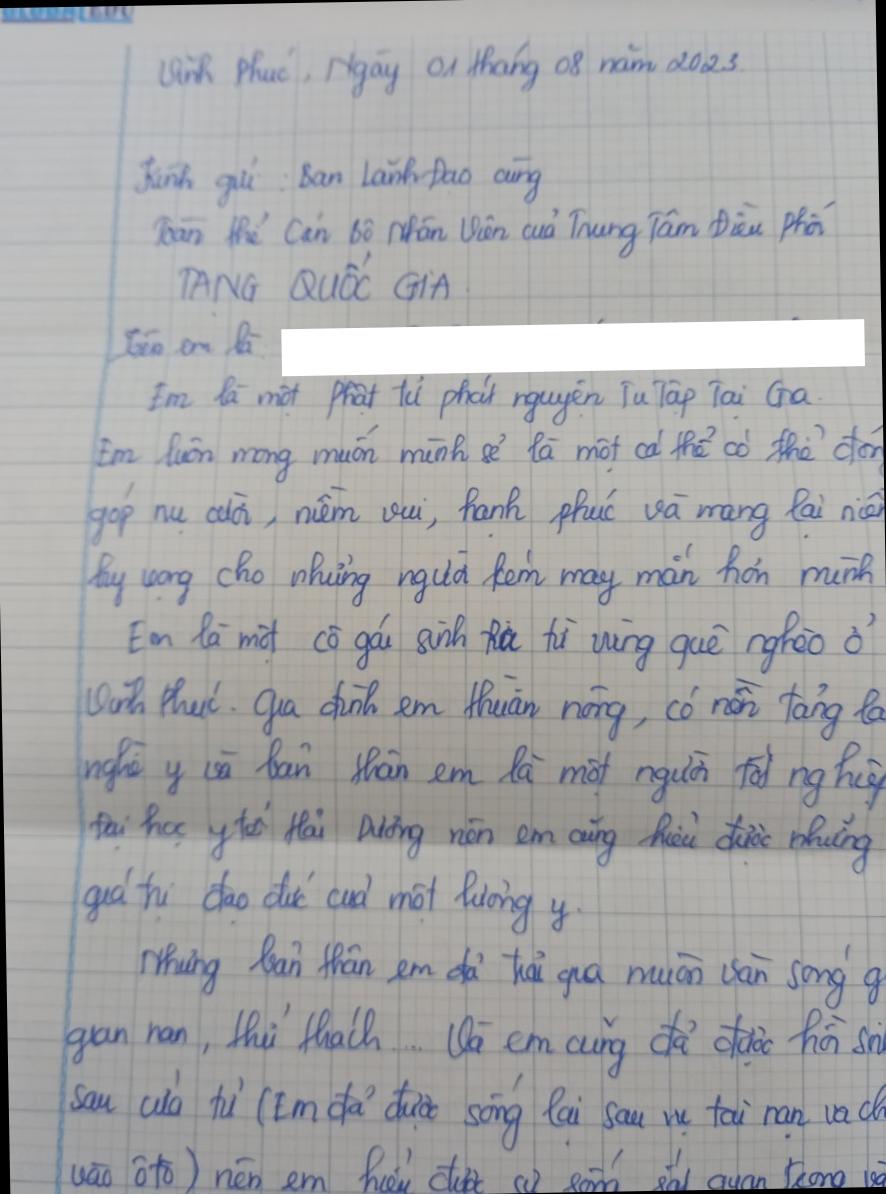 GLOBAL EDU
Vĩnh Phúc, Ngày 01 tháng 08 năm 2023.
Kính gửi: Ban Lãnh Đạo cùng
Toàn thể Cán bộ Nhân Viên của Trung Tâm Điều phối
TẠNG QUỐC GIA
Tên em là
Em là một Phật tử phát nguyện Tu Tập Tại Gia.
Em luôn mong muốn mình sẽ là một cá thể có thể đón
góp nụ cười, niềm vui, hạnh phúc và mang lại niề
hy vọng cho những người kém may mắn hơn mình
Em là một cô gái sinh ra từ vùng quê nghèo ở
Vĩnh Phúc. Gia đình em thuần nông, có nền tảng là
nghề y và bản thân em là một người tốt nghiệp
đại học y tế Hải Dương nên em cũng hiểu được những
giá trị đạo đức của một lương y.
Nhưng bản thân em đã trải qua muôn vàn sóng g
gian nan, thử thách... Và em cũng đã được hồi sin
sau cửa tử (Em đã được sống lại sau vụ tai nạn va ch
vào ôtô) nên em hiểu được sự sống rất quan trọng và